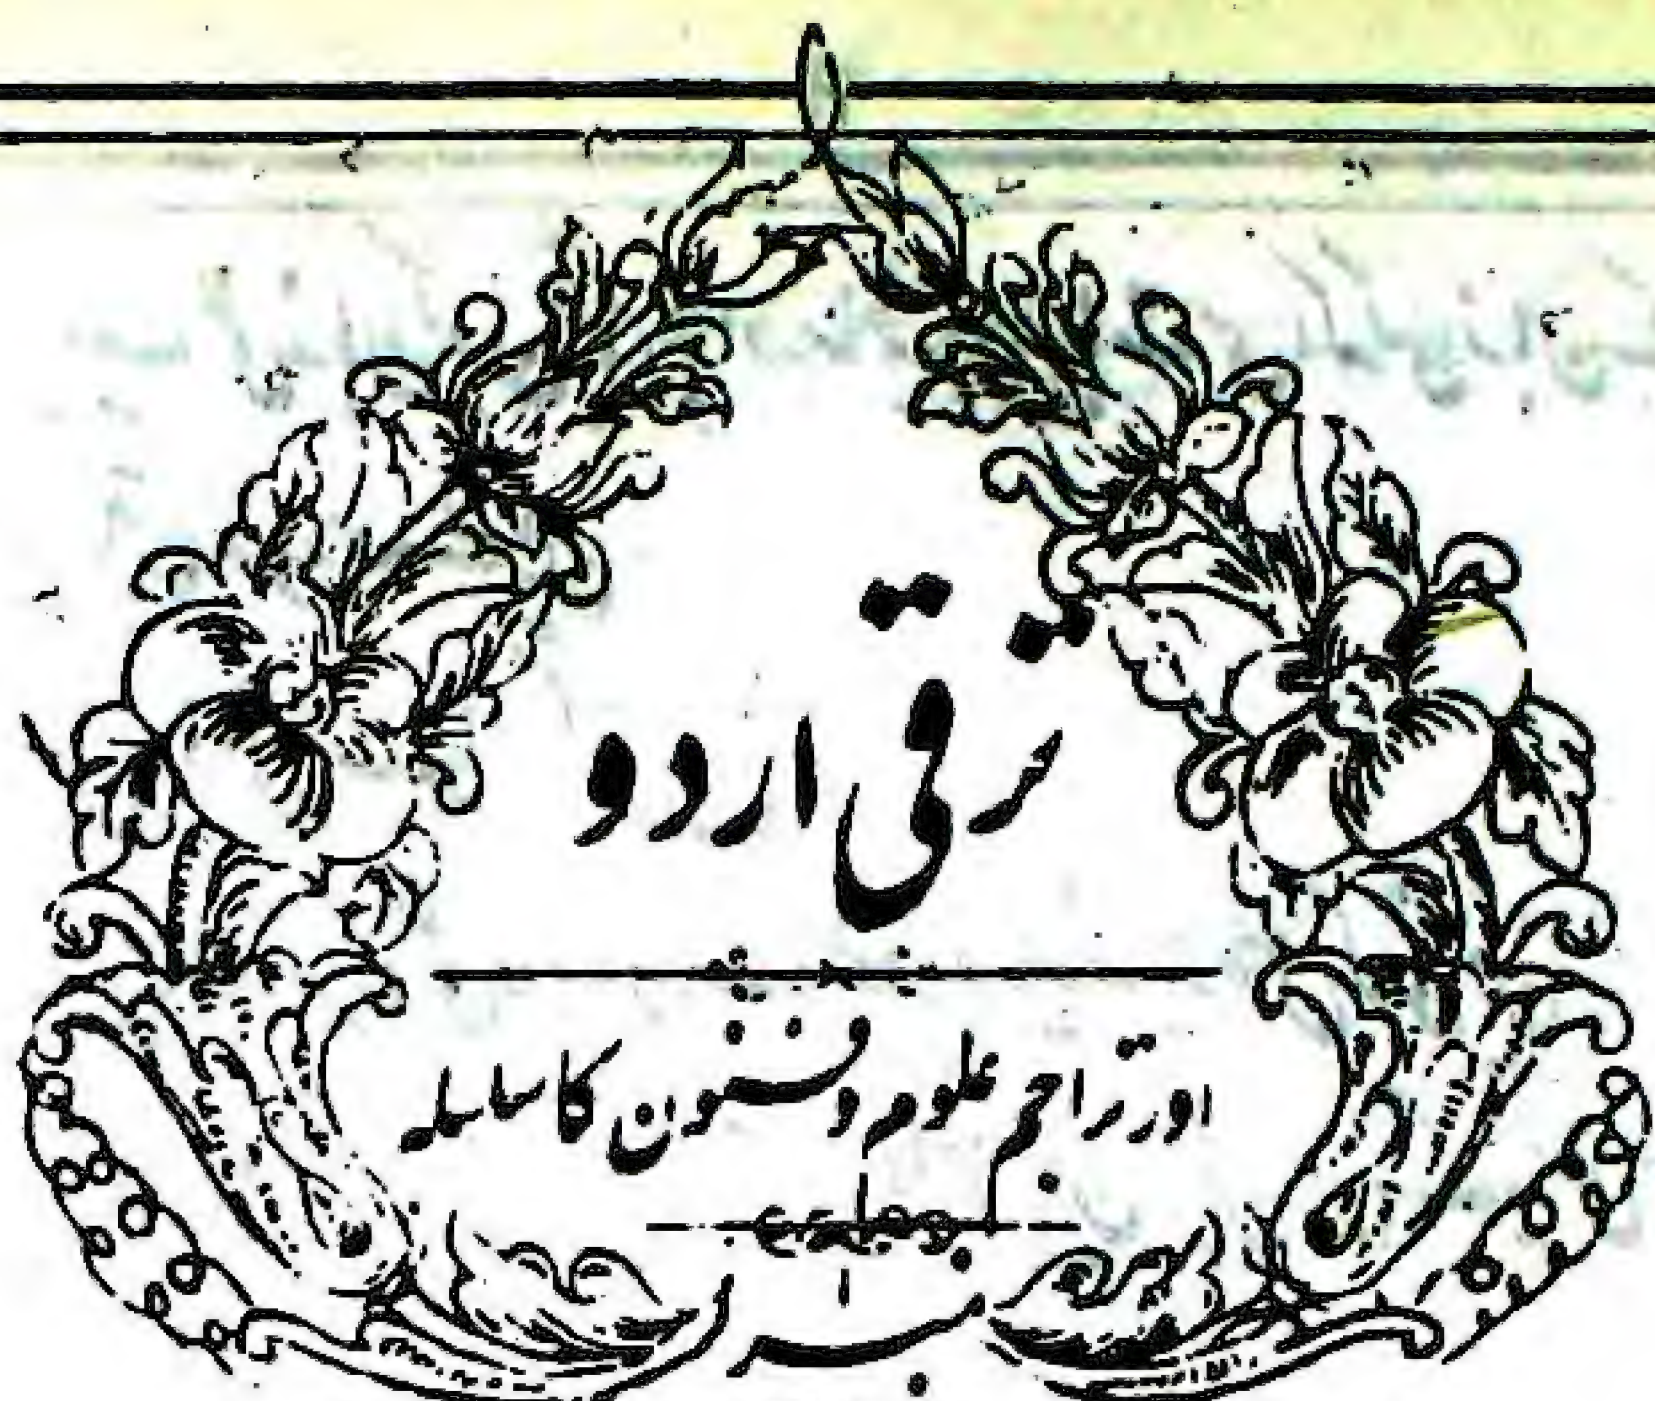 ترقی اردو
اور تراجم علوم و فنون کا سلسلہ
نمبر ۱